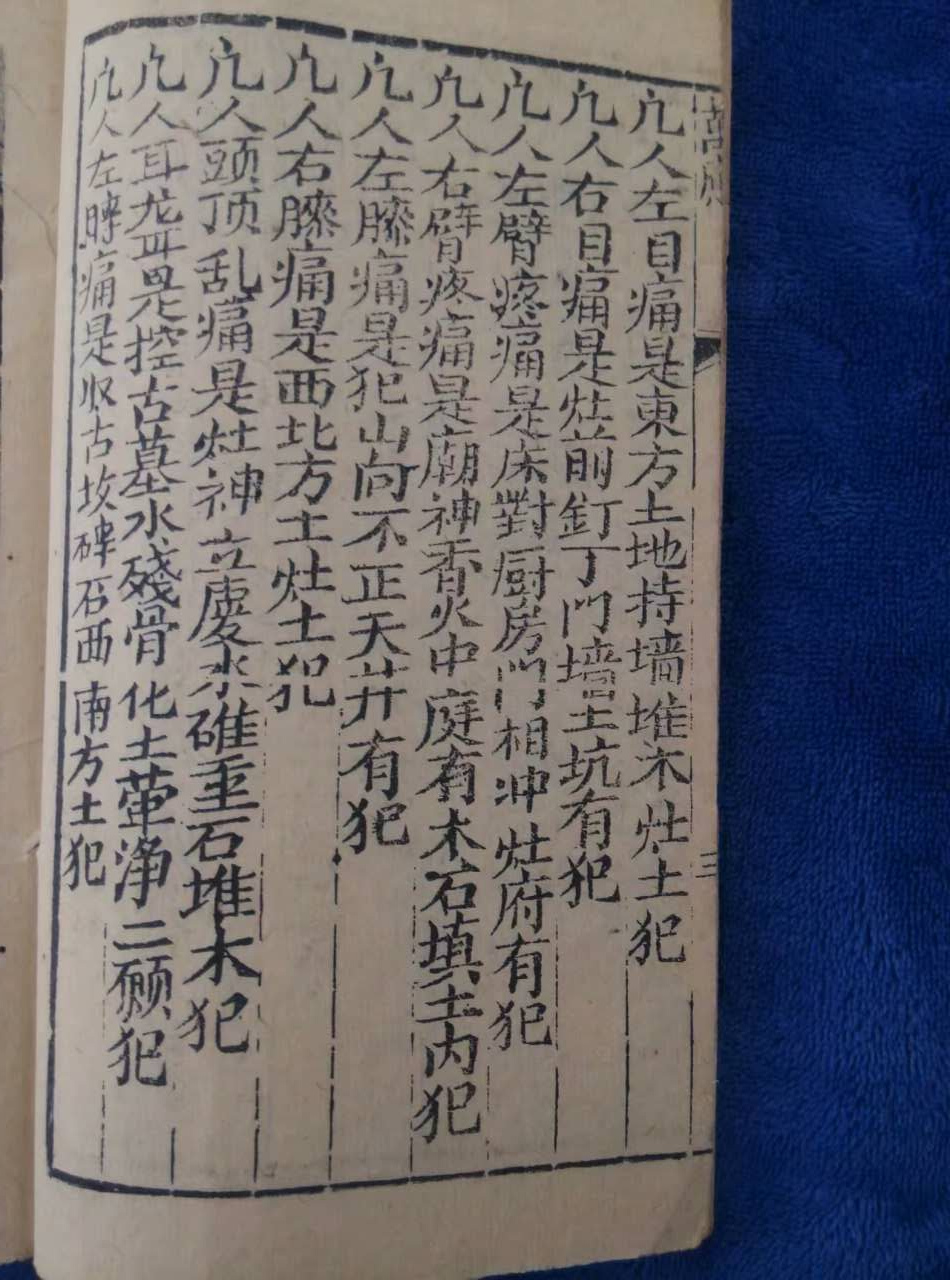 凢人左目痛是東方土地持墙堆木灶土犯
凢人右目痛是灶前釘丁門墙土坑有犯
凢人左臂疼痛是床對厨房門相冲灶府有犯
凢人右臂疼痛是廟神香火中庭有木石填土内犯
凢人左膝痛是犯山向不正天井有犯
凢人右膝痛是西北方土灶土犯
凢人頭顶乱痛是灶神立處水碓重石堆木犯
凢人耳龙耳是控古墓水殘骨化土葷浄二願犯
凢人左膊痛是収古坟碑石西南方土犯
三